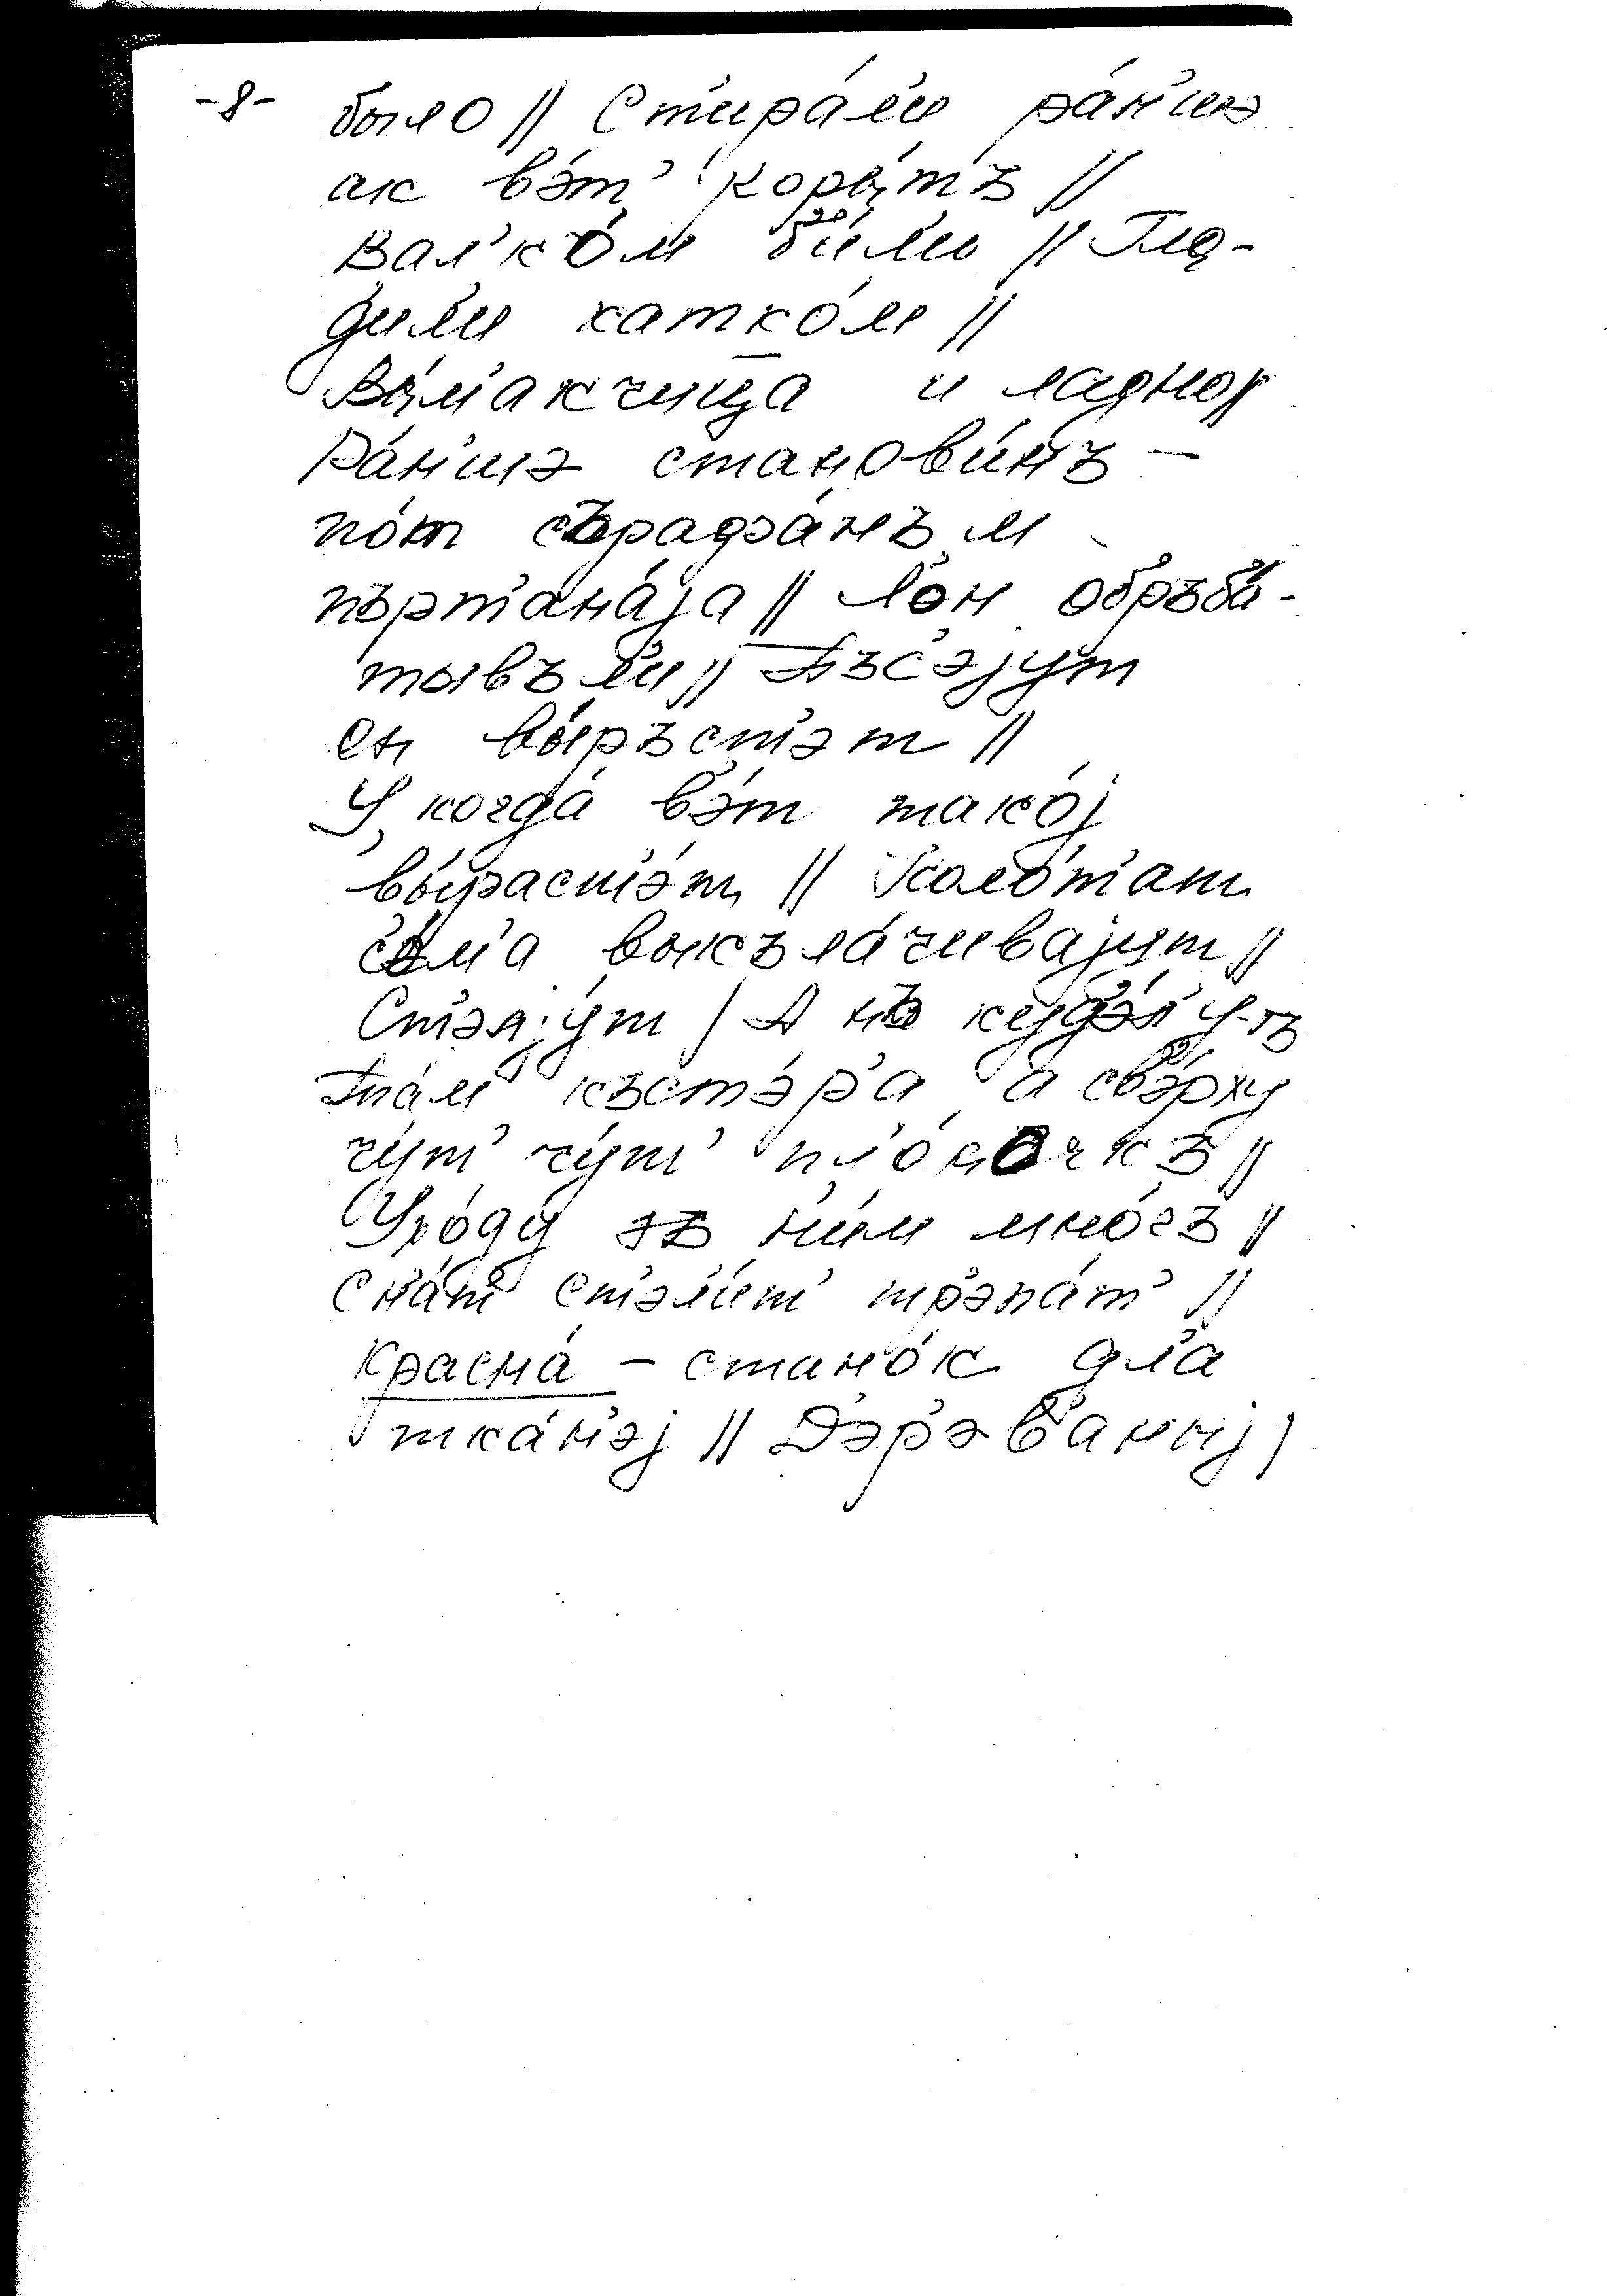 -8- было // Ст'ира́л'и ра́н'шэ
ак вэ́т' коры́тъ //
Вал'ко́м би́л'и // Гла-
дил'и катко́м //
Вы́м'акчица и ладно //
Ра́н'шэ станови́нъ –
по́т съраფа́нъм
пърт'ана́jа // Л'о́н обръба́-
тывъл'и // Пъс'э́jут
он вы́ръст'эт //
У когда́ вэ́т тако́j
вы́раст'эт // Коло́т'ат
с'э́м'а выкъла́чивajут //
Ст'эл'jу́т / А нъ куд'э́л'у-тъ
там къст'э́р'а а св'э́рху
чу́т' чу́т' пл'о́ночкъ //
Ухо́ду зъ н'и́м мно́гъ //
Сн'а́т' ст'эл'и́т' тр'эпа́т' //
Красна́ – стано́к дл'а
тка́н'эj // Д'эр'эв'а́ныj /